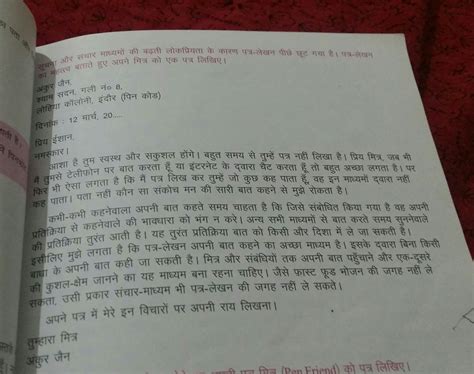 सूचना और संचार माध्यमों की बढ़ती लोकप्रियता के कारण पत्र-लेखन पीछे छूट गया है। पत्र-लेखन
का महत्व बताते हुए अपने मित्र को एक पत्र लिखिए।
अंकुर जैन,
श्याम सदन, गली नं० 8,
लोहिया कॉलोनी, इंदौर (पिन कोड)
दिनांक : 12 मार्च, 20....
प्रिय ईशान,
नमस्कार।
आशा है तुम स्वस्थ और सकुशल होंगे। बहुत समय से तुम्हें पत्र नहीं लिखा है। प्रिय मित्र, जब भी
मैं तुमसे टेलीफोन पर बात करता हूँ या इंटरनेट के द्वारा चैट करता हूँ तो बहुत अच्छा लगता है। पर
फिर भी ऐसा लगता है कि मैं पत्र लिख कर तुम्हें जो कुछ कह पाता हूँ, वह इन माध्यमों द्वारा नहीं
कह पाता। पता नहीं कौन सा संकोच मन की सारी बात कहने से मुझे रोकता है।
कभी-कभी कहनेवाला अपनी बात कहते समय चाहता है कि जिसे संबोधित किया गया है वह अपनी
प्रतिक्रिया से कहनेवाले की भावधारा को भंग न करे। अन्य सभी माध्यमों से बात करते समय सुननेवाले
की प्रतिक्रिया तुरंत आती है। यह तुरंत प्रतिक्रिया बात को किसी और दिशा में ले जा सकती है।
इसीलिए मुझे लगता है कि पत्र-लेखन अपनी बात कहने का अच्छा माध्यम है। इसके द्वारा बिना किसी
बाधा के अपनी बात कही जा सकती है। मित्र और संबंधियों तक अपनी बात पहुँचाने और एक-दूसरे
की कुशल-क्षेम जानने का यह माध्यम बना रहना चाहिए। जैसे फ़ास्ट फूड भोजन की जगह नहीं ले
सकता, उसी प्रकार संचार-माध्यम भी पत्र-लेखन की जगह नहीं ले सकते।
अपने पत्र में मेरे इन विचारों पर अपनी राय लिखना।
तुम्हारा मित्र
अंकुर जैन
मित्र (Pen Friend) को पत्र लिखिए।